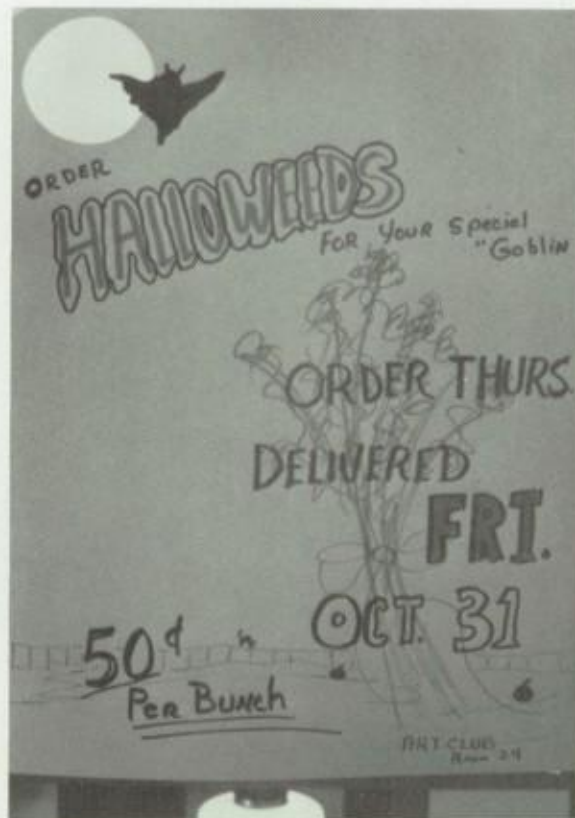 ORDER
HALLOWEEDS
FOR YOUR Special
"Goblin
ORDER THURS.
DELIVERED
FRI.
OCT. 31
50¢
PER BUNCH
ART CLUB
Room 24